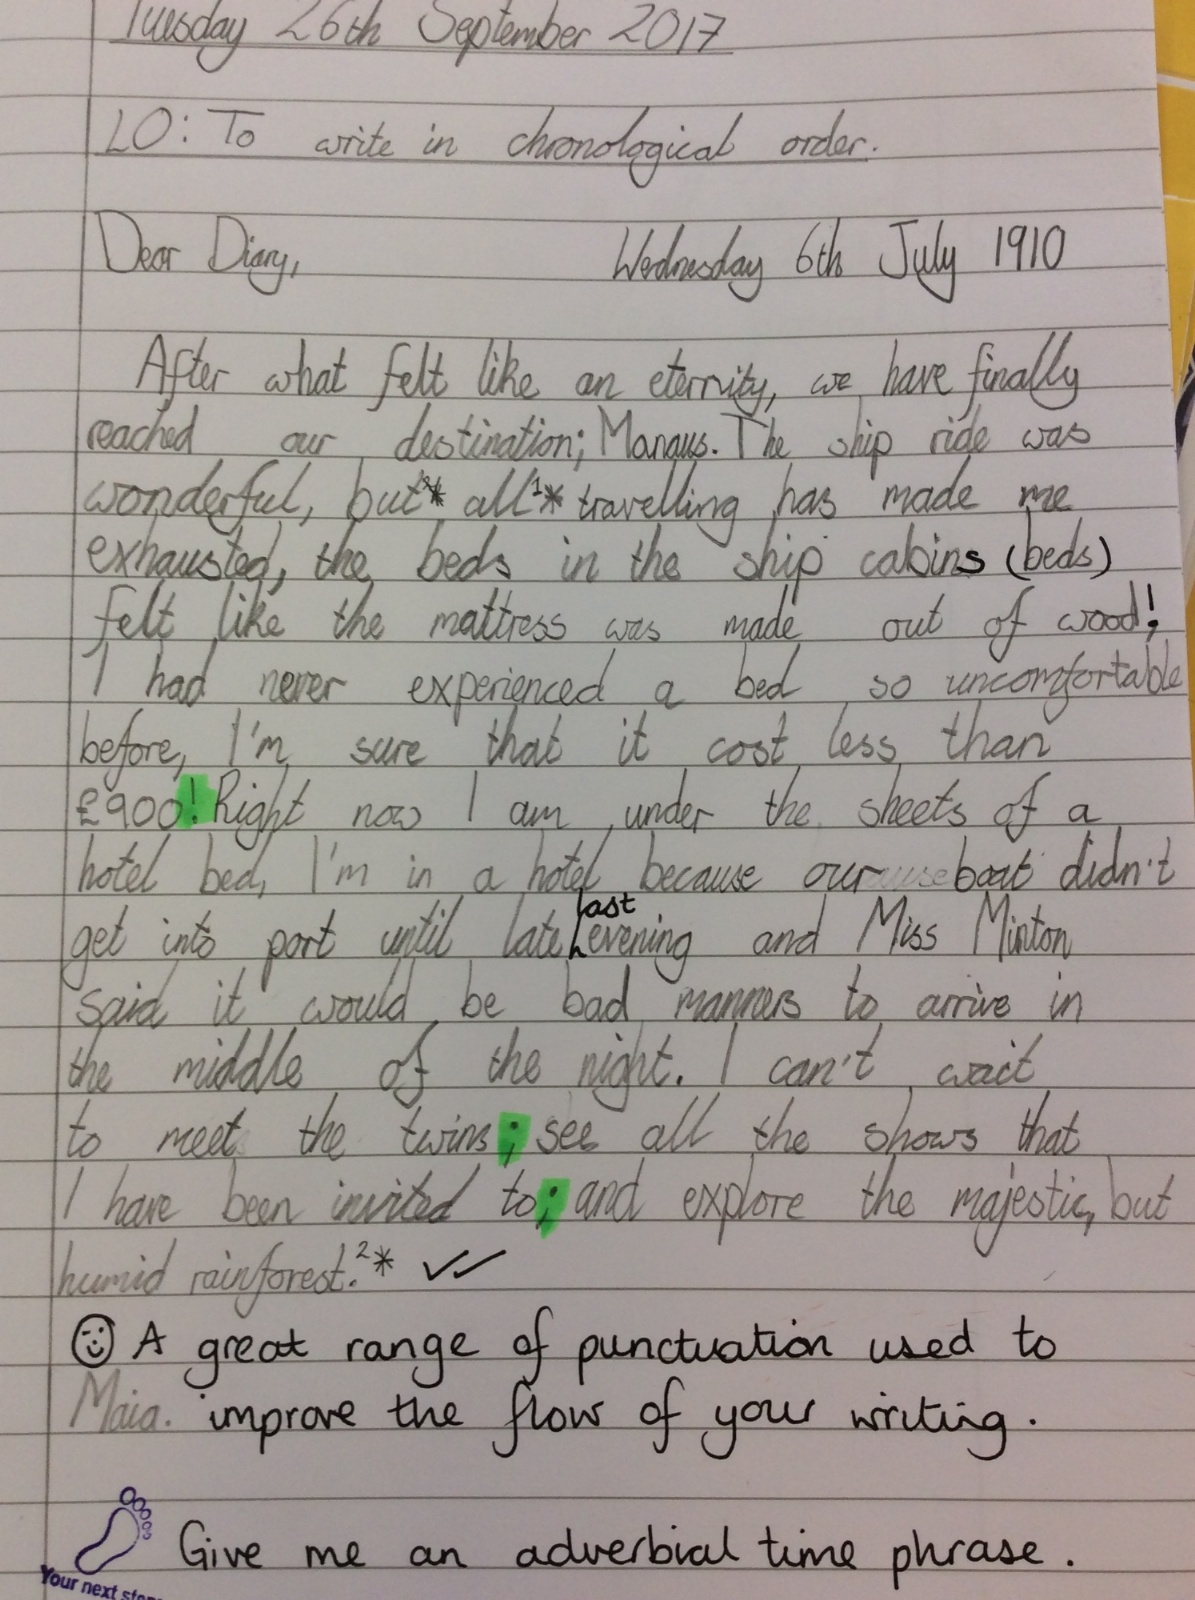 Tuesday 26th September 2017
LO: To write in chronological order.
Dear Diary, Wednesday 6th July 1910
After what felt like an eternity, we have finally
reached our destination; Manaus. The ship ride was
wonderful, but* all¹* travelling has made me
exhausted, the beds in the ship cabins (beds)
felt like the mattress was made out of wood!
I had never experienced a bed so uncomfortable
before, I'm sure that it cost less than
£900! Right now I am under the sheets of a
hotel bed, I'm in a hotel because our boat didn't
get into port until late last evening and Miss Minton
said it would be bad manners to arrive in
the middle of the night. I can't wait
to meet the twins; see all the shows that
I have been invited to; and explore the majestic, but
humid rainforest.²* ✓✓
☺ A great range of punctuation used to
Maia. improve the flow of your writing.
Give me an adverbial time phrase.
Your next step